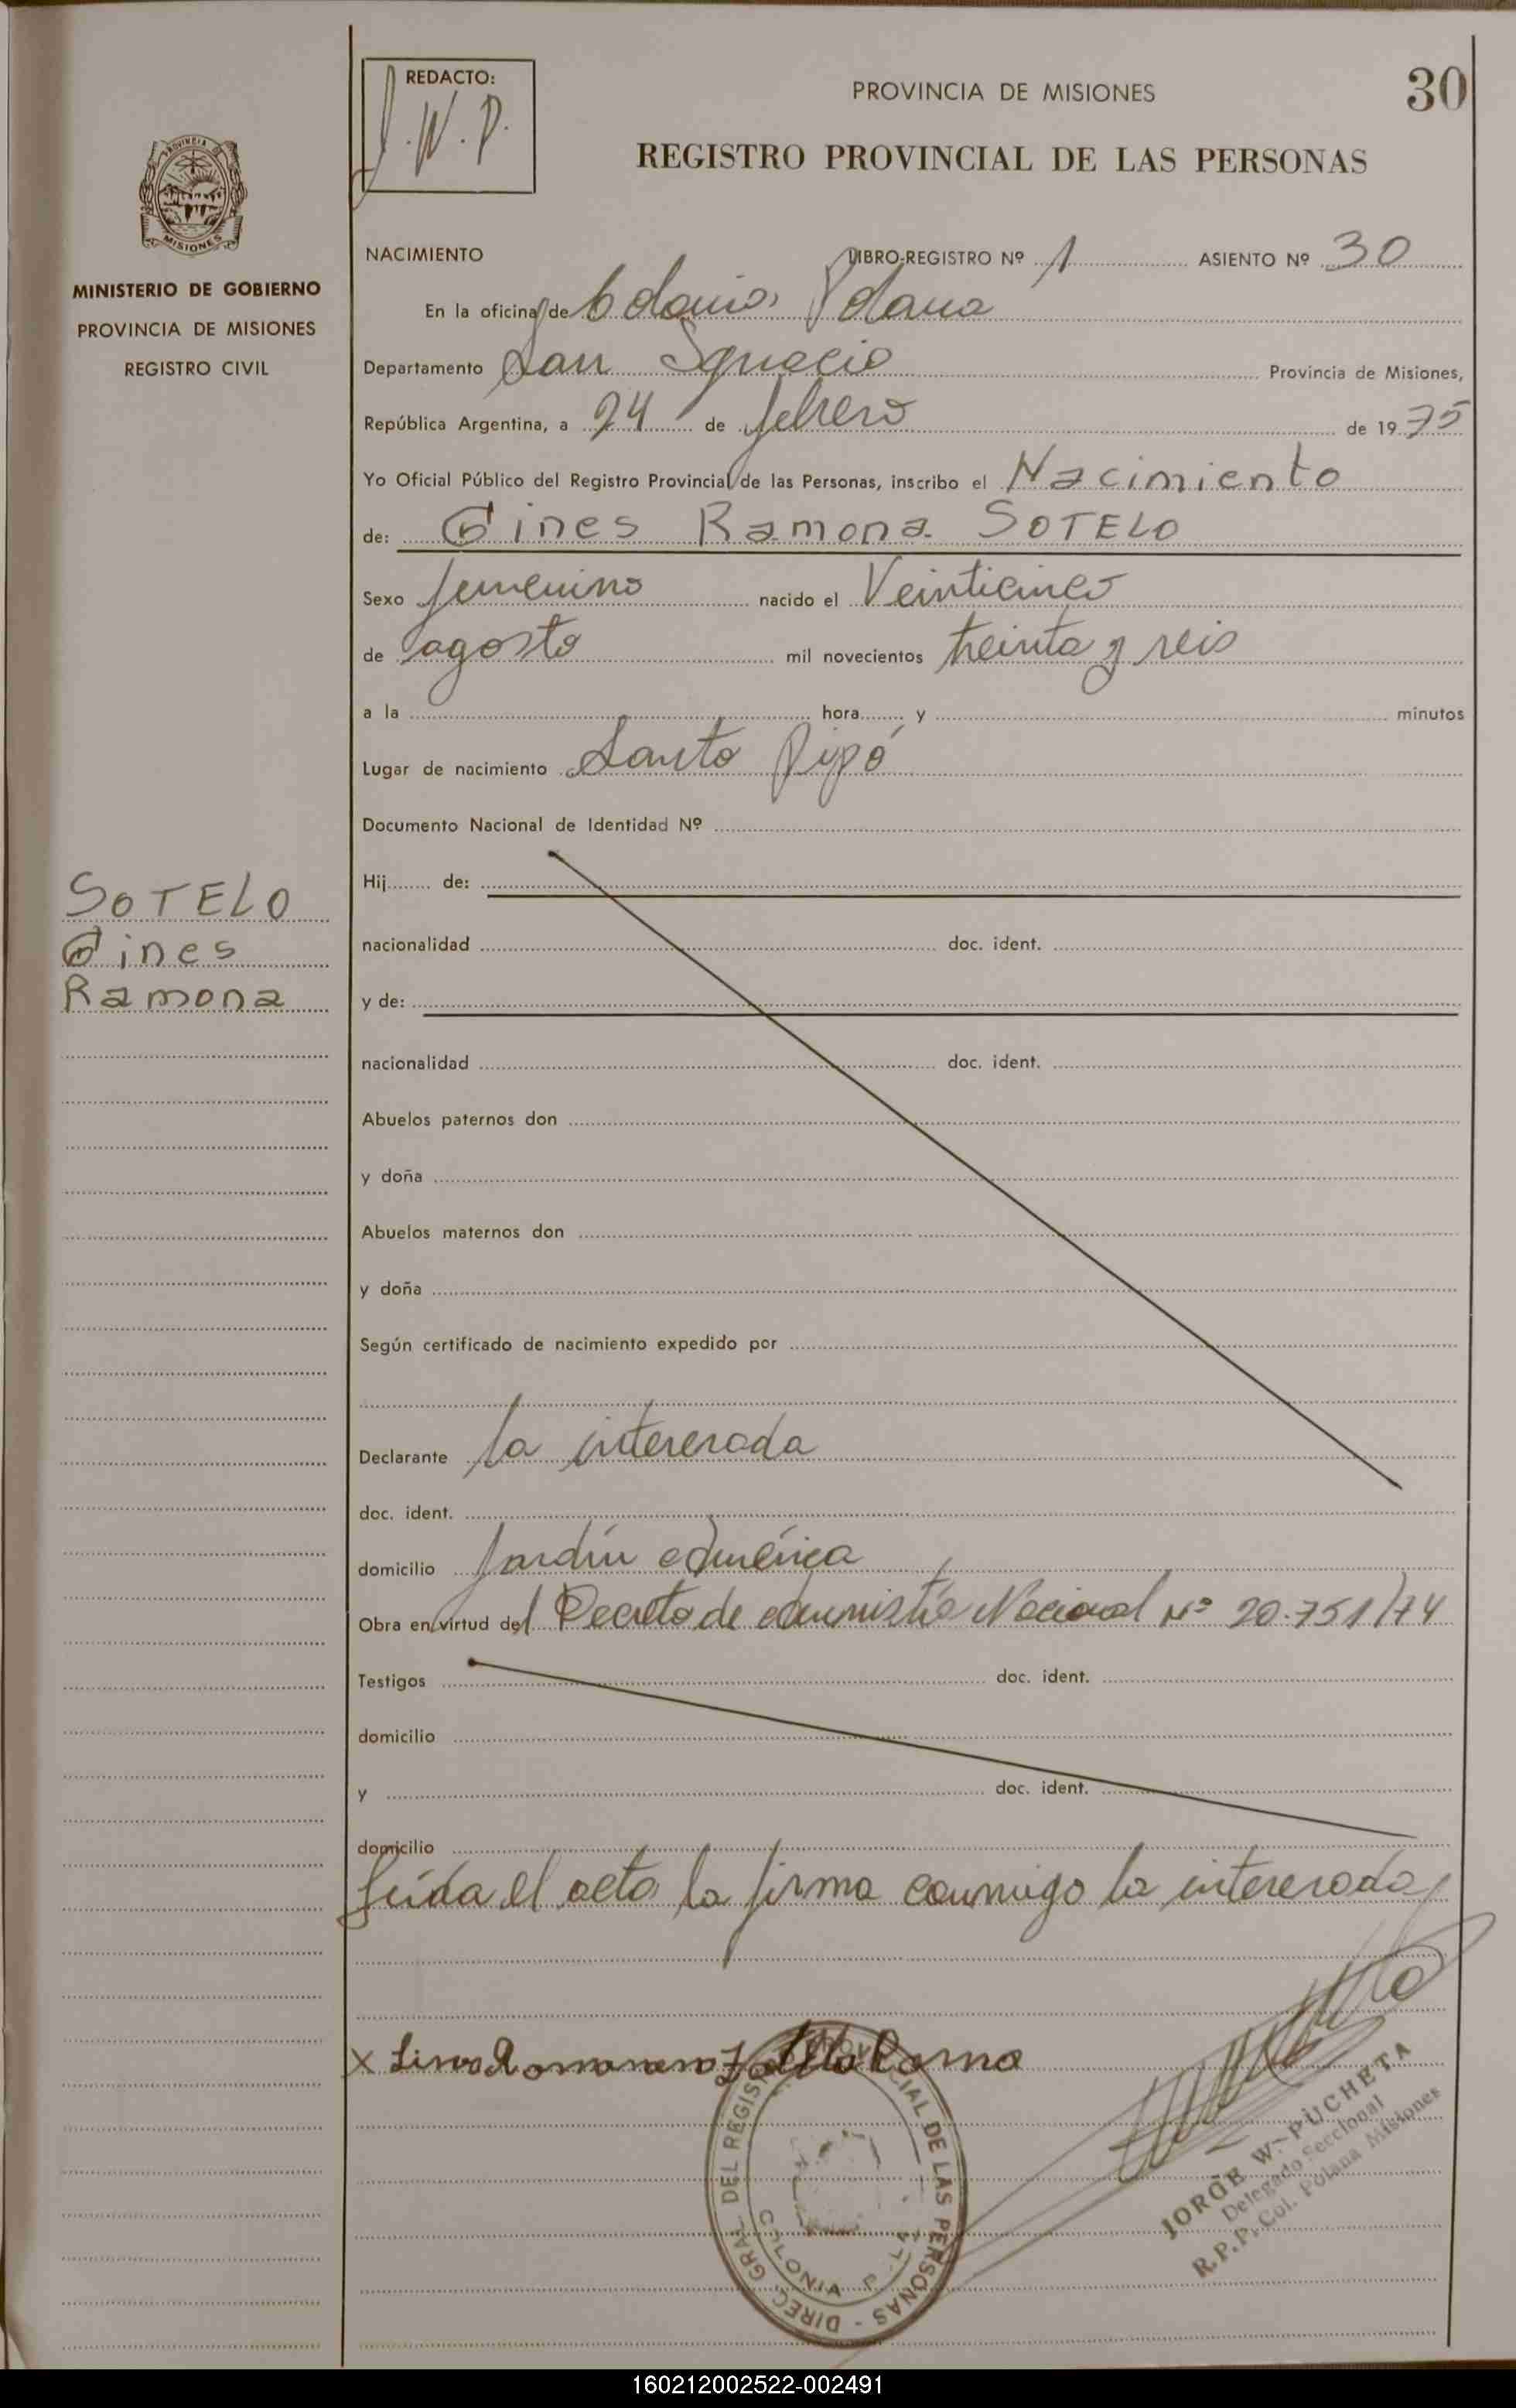 REDACTO:
J.W.P.
PROVINCIA DE MISIONES
30
REGISTRO PROVINCIAL DE LAS PERSONAS
MISIONES
MINISTERIO DE GOBIERNO
PROVINCIA DE MISIONES
REGISTRO CIVIL
NACIMIENTO LIBRO-REGISTRO Nº 1 ASIENTO Nº 30
En la oficina de Colonia Polana
Departamento San Ignacio Provincia de Misiones,
República Argentina, a 24 de febrero de 1975
Yo Oficial Público del Registro Provincial de las Personas, inscribo el Nacimiento
de: Gines Ramona SOTELO
Sexo femenino nacido el Veinticinco
de agosto mil novecientos treinta y seis
a la hora y minutos
Lugar de nacimiento Santo Pipó
Documento Nacional de Identidad Nº
SOTELO
Gines
Ramona
Hij de:
nacionalidad doc. ident.
y de:
nacionalidad doc. ident.
Abuelos paternos don
y doña
Abuelos maternos don
y doña
Según certificado de nacimiento expedido por
Declarante la interesada
doc. ident.
domicilio Jardín América
Obra en virtud del Decreto de Amnistía Nacional Nº 20.751/74
Testigos doc. ident.
domicilio
y doc. ident.
domicilio
Leída el acta la firma conmigo la interesada
X
DIREC. GRAL. DEL REGIS CIAL DE LAS PERSONAS
COLONIA
JORGE W. PUCHETA
Delegado Seccional
R.P.P. Col. Polana Misiones
160212002522-002491